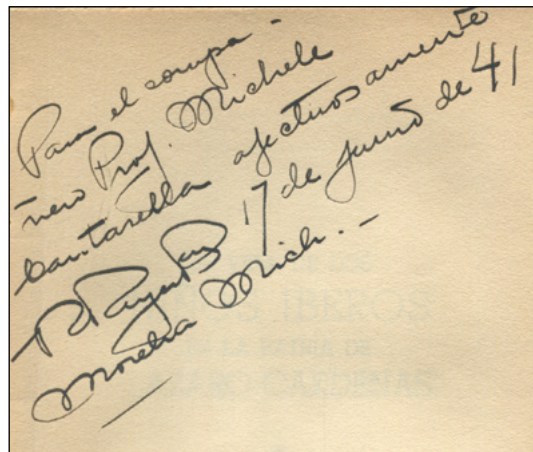 Para el compa-
ñero Prof. Michele
Cantarella afectuosamente
17 de junio de 41
Morelia Mich. -
IBEROS
CARDENAS